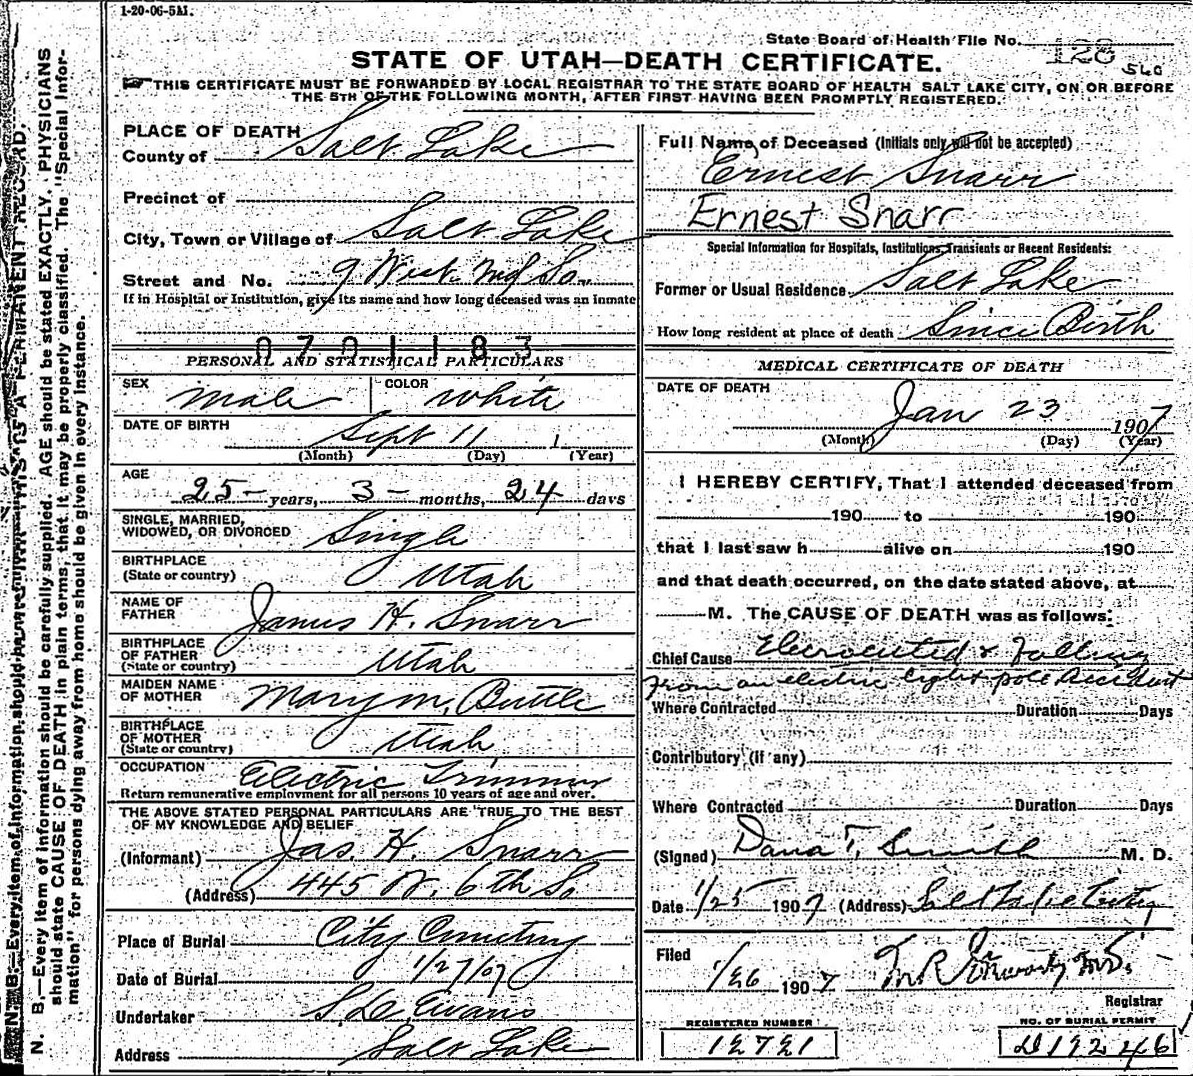 1-20-06-5M.
State Board of Health File No. 128
560
STATE OF UTAH—DEATH CERTIFICATE.
THIS CERTIFICATE MUST BE FORWARDED BY LOCAL REGISTRAR TO THE STATE BOARD OF HEALTH SALT LAKE CITY, ON OR BEFORE
THE 5TH OF THE FOLLOWING MONTH, AFTER FIRST HAVING BEEN PROMPTLY REGISTERED.
N. B.—Every item of information should be carefully supplied. AGE should be stated EXACTLY. PHYSICIANS
should state CAUSE OF DEATH in plain terms, that it may be properly classified. The "Special Infor-
mation" for persons dying away from home should be given in every instance.
PLACE OF DEATH
County of Salt Lake
Precinct of
City, Town or Village of Salt Lake
Street and No. 9 West. So.
If in Hospital or Institution, give its name and how long deceased was an inmate
0701183
PERSONAL AND STATISTICAL PARTICULARS
SEX male COLOR white
DATE OF BIRTH Sept 11 1
(Month) (Day) (Year)
AGE
25 years, 3 months, 24 days
SINGLE, MARRIED,
WIDOWED, OR DIVORCED Single
BIRTHPLACE
(State or country) Utah
NAME OF
FATHER James H. Snarr
BIRTHPLACE
OF FATHER
(State or country) Utah
MAIDEN NAME
OF MOTHER Mary M.
BIRTHPLACE
OF MOTHER
(State or country) Utah
OCCUPATION Electric Trimmer
Return remunerative employment for all persons 10 years of age and over.
THE ABOVE STATED PERSONAL PARTICULARS ARE TRUE TO THE BEST
OF MY KNOWLEDGE AND BELIEF
(Informant) Jas. H. Snarr
(Address) 445 W. 6th So
Place of Burial City Cemetery
Date of Burial 1/27/07
Undertaker Evans
Address Salt Lake
Full Name of Deceased (Initials only will not be accepted)
Ernest Snarr
Ernest Snarr
Special Information for Hospitals, Institutions, Transients or Recent Residents:
Former or Usual Residence Salt Lake
How long resident at place of death Since Birth
MEDICAL CERTIFICATE OF DEATH
DATE OF DEATH
Jan 23 1907
(Month) (Day) (Year)
I HEREBY CERTIFY, That I attended deceased from
190 to 190
that I last saw h alive on 190
and that death occurred, on the date stated above, at
M. The CAUSE OF DEATH was as follows:
Chief Cause Elecrocuted & Falling
from an electric light pole Accident
Where Contracted Duration Days
Contributory (if any)
Where Contracted Duration Days
(Signed) Dana T. Smith M. D.
Date 1/25 1907 (Address) Salt Lake City
Filed
1/26 1907
Registrar
REGISTERED NUMBER
12721
NO. OF BURIAL PERMIT
D19246